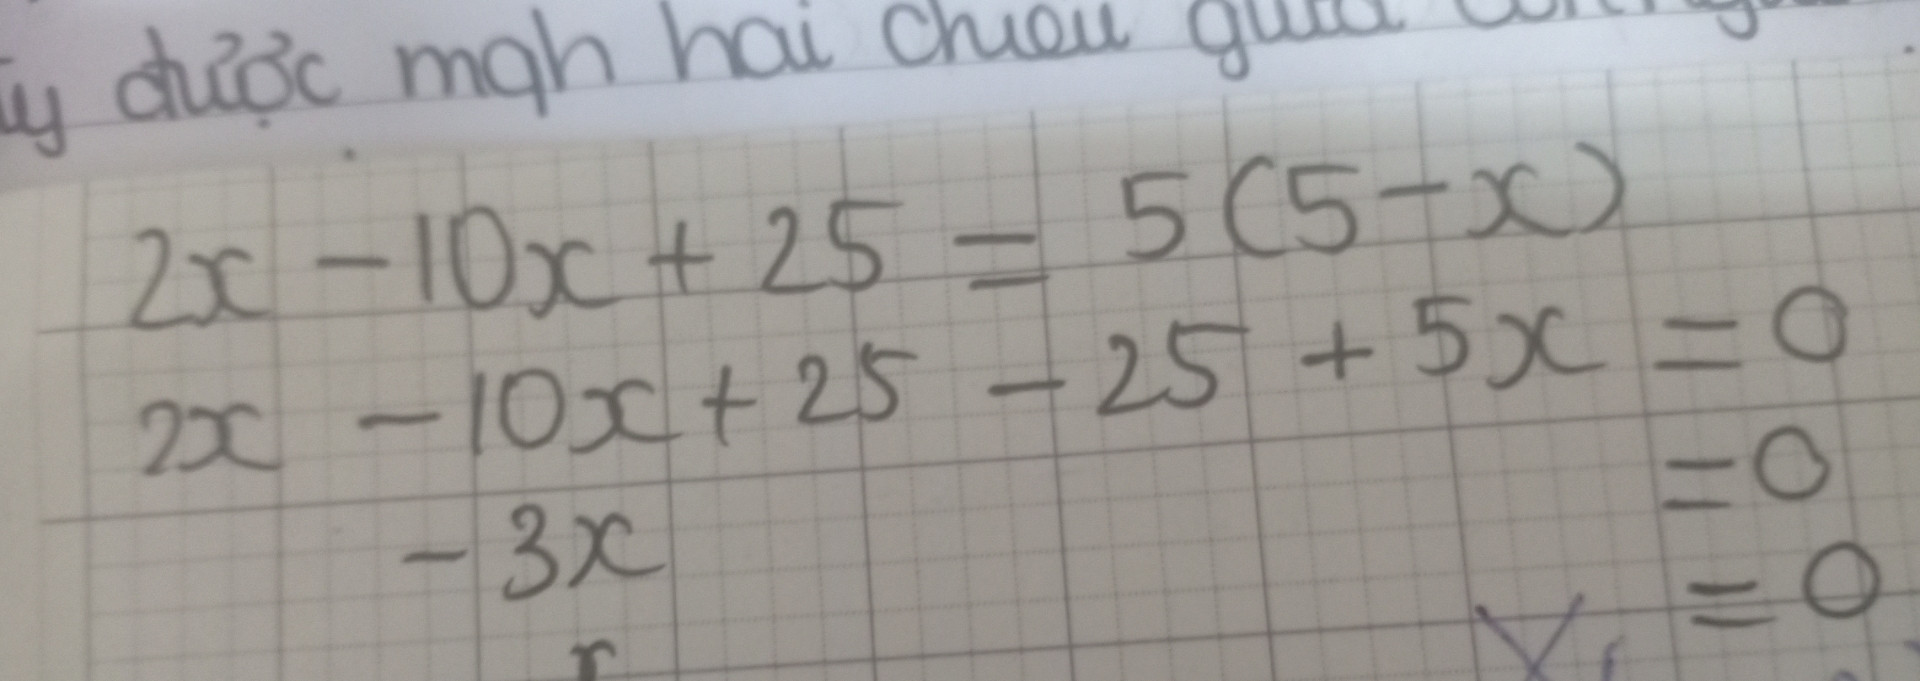 được mqh hai chiều giữa
2x - 10x + 25 = 5(5 - x)
2x - 10x + 25 - 25 + 5x = 0
- 3x = 0
x = 0